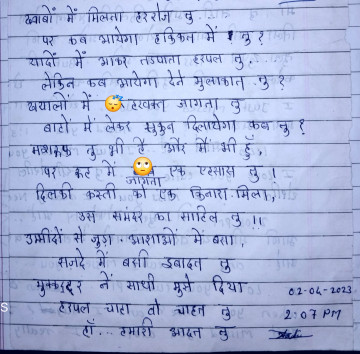 ख्वाबों में मिलता हररोज तु...
पर कब आयेगा हकिकत में तु?
यादों में आकर तडपाता हरपल तु.
लेकिन कब आयेगा देने मुलाकात तु?
खयालों में 😴 हरवक्त जागता तु
बाहों में लेकर सुकुन दिलायेगा कब तु?
मशरूफ तु भी है और मैं भी हुँ,
पर में 🙄 एक एहसास तु।
जागता
दिलकी कस्ती को एक किनारा मिला,
उस समंदर का साहिल तु।।
उम्मीदों से जुडा आशाओं में बसा
सजदे में बसी इबादत तु
मुकद्दर नें साथी मुझे दिया
02-04-2023
हरपल चाहा वो चाहत तु
2:07 PM
हाँ... हमारी आदत तु
S